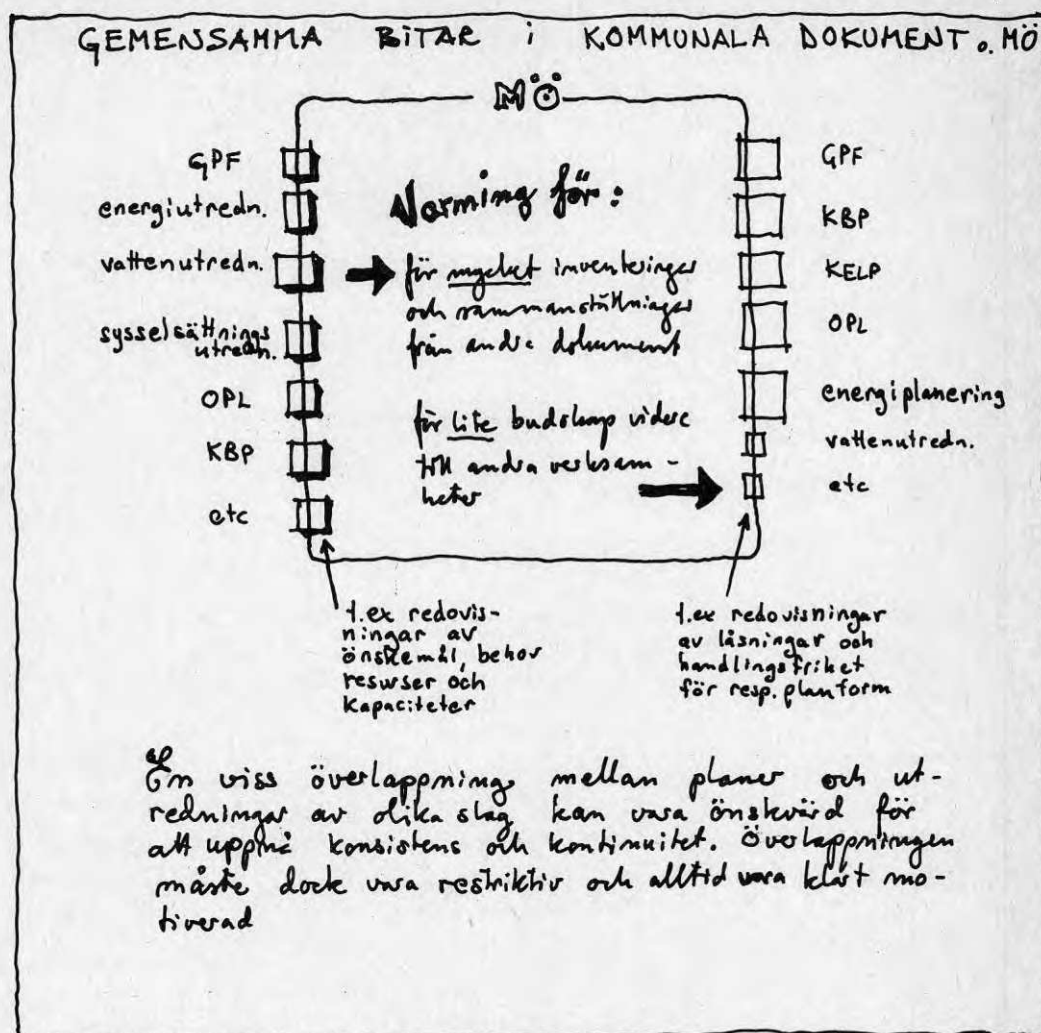 GEMENSAMMA BITAR i KOMMUNALA DOKUMENT o. MÖ
MÖ
GPF
energiutredn.
vattenutredn.
sysselsättnings
utredn.
OPL
KBP
etc
Varning för:
för mycket inventeringar
och sammanställningar
från andra dokument
för lite budskap vidare
till andra verksam-
heter
GPF
KBP
KELP
OPL
energiplanering
vattenutredn.
etc
t.ex redovis-
ningar av
önskemål, behov
resurser och
kapaciteter
t.ex redovisningar
av låsningar och
handlingsfrihet
för resp. planform
En viss överlappning mellan planer och ut-
redningar av olika slag kan vara önskvärd för
att uppnå konsistens och kontinuitet. Överlappningen
måste dock vara restriktiv och alltid vara klart mo-
tiverad